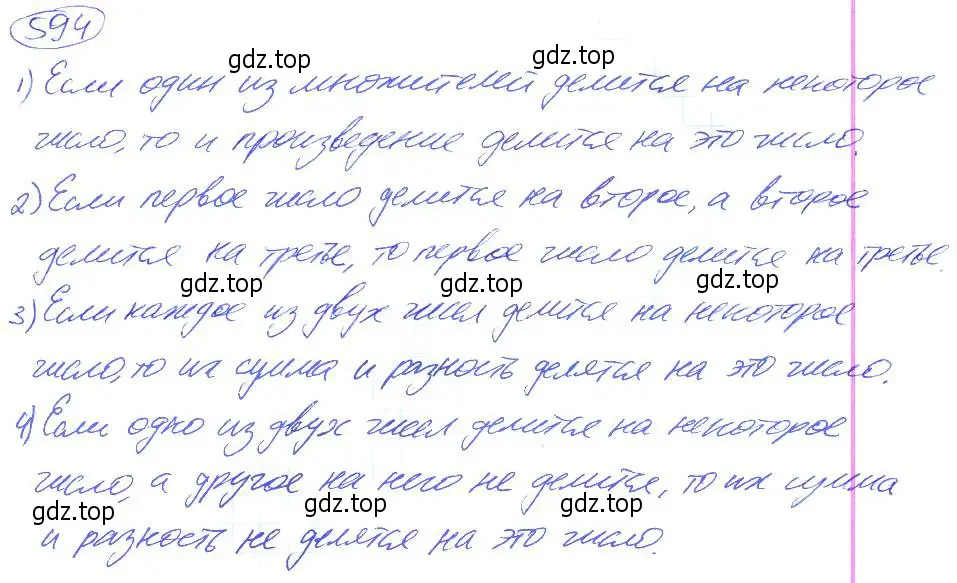 594
gdz.top gdz.top
1) Если один из множителей делится на некоторое
число, то и произведение делится на это число.
2) Если первое число делится на второе, а второе
делится на третье, то первое число делится на третье.
gdz.top gdz.top gdz.top
3) Если каждое из двух чисел делится на некоторое
число, то их сумма и разность делятся на это число.
4) Если одно из двух чисел делится на некоторое
число, а другое на него не делится, то их сумма
gdz.top gdz.top gdz.top
и разность не делятся на это число.